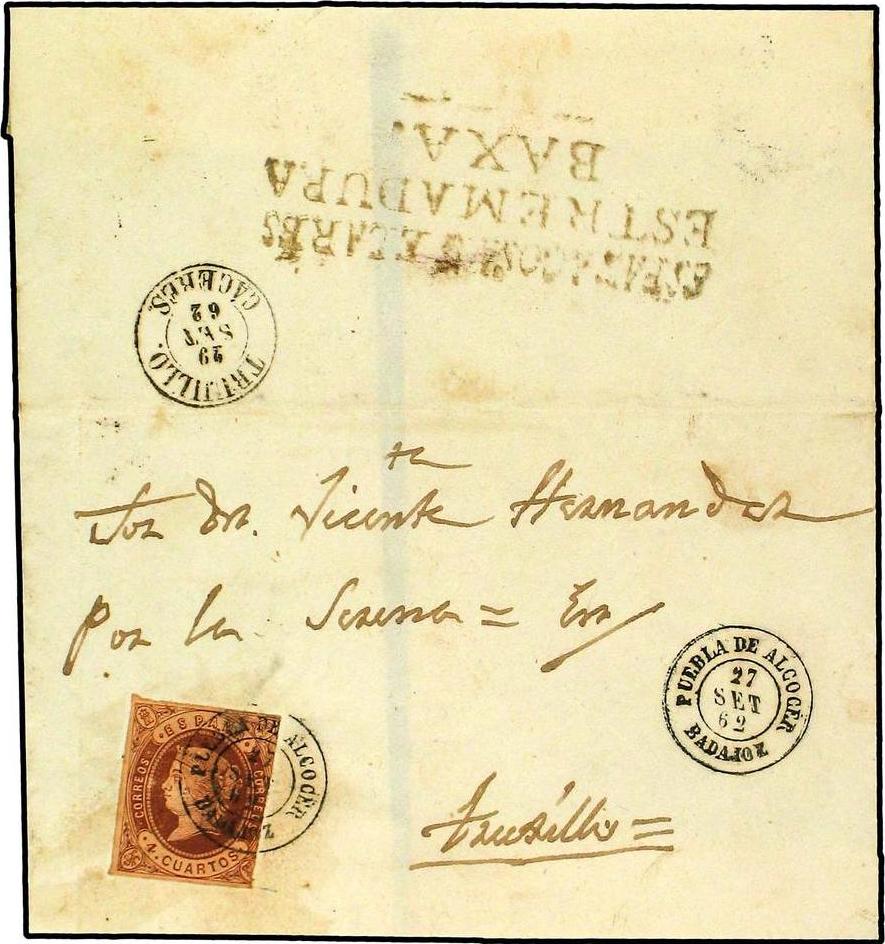 ESTREMADURA
BAXA.
TRUJILLO.
29
SET
62
CÁCERES.
Sor Dn. Vicente Hernandez
Por la Serena = En
PUEBLA DE ALCOCÉR
27
SET
62
BADAJOZ
ESPAÑA
CORREOS
CORREOS
4 CUARTOS
DE ALCOCÉR
Truxillo =